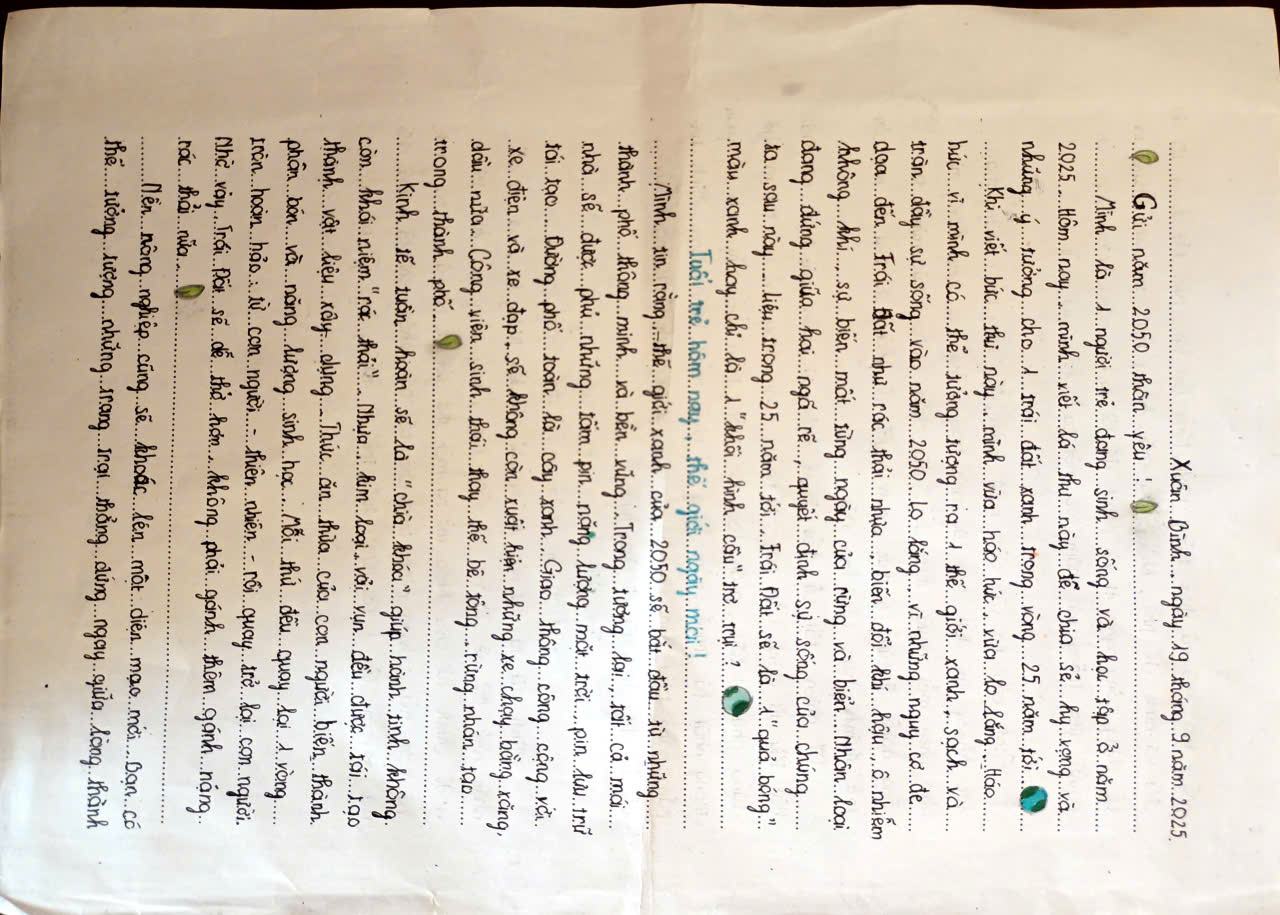 Xuân Bình, ngày 19 tháng 9 năm 2025.
Gửi năm 2050 thân yêu!
Mình là 1 người trẻ đang sinh sống và học tập ở năm
2025. Hôm nay mình viết lá thư này để chia sẻ hy vọng và
những ý tưởng cho 1 trái đất xanh trong vòng 25 năm tới.
Khi viết bức thư này, mình vừa háo hức, vừa lo lắng. Háo
hức vì mình có thể tưởng tượng ra 1 thế giới xanh, sạch và
tràn đầy sự sống vào năm 2050. Lo lắng vì những nguy cơ đe
dọa đến Trái Đất như rác thải nhựa, biến đổi khí hậu, ô nhiễm
không khí, sự biến mất từng ngày của rừng và biển. Nhân loại
đang đứng giữa hai ngã rẽ, quyết định sự sống của chúng
ta sau này. Liệu trong 25 năm tới, Trái Đất sẽ là 1 "quả bóng"
màu xanh hay chỉ là 1 "khối hình cầu" trơ trụi?
Tuổi trẻ hôm nay, thế giới ngày mới!
Mình tin rằng thế giới xanh của 2050 sẽ bắt đầu từ những
thành phố thông minh và bền vững. Trong tương lai, tất cả mái
nhà sẽ được phủ những tấm pin năng lượng mặt trời, pin lưu trữ
tái tạo. Đường phố toàn là cây xanh. Giao thông công cộng với
xe điện và xe đạp, sẽ không còn xuất hiện những xe chạy bằng xăng,
dầu nữa. Công viên sinh thái thay thế bê tông, rừng nhân tạo
trong thành phố.
Kinh tế tuần hoàn sẽ là "chìa khóa" giúp hành tinh không
còn khái niệm "rác thải". Nhựa, kim loại, vải vụn đều được tái tạo
thành vật liệu xây dựng. Thức ăn thừa của con người biến thành
phân bón và năng lượng sinh học. Mỗi thứ đều quay lại 1 vòng
tròn hoàn hảo: từ con người - thiên nhiên - rồi quay trở lại con người.
Nhờ vậy, Trái Đất sẽ dễ thở hơn, không phải gánh thêm gánh nặng
rác thải nữa.
Nền nông nghiệp cũng sẽ khoác lên một diện mạo mới. Bạn có
thể tưởng tượng những trang trại thẳng đứng ngay giữa lòng thành